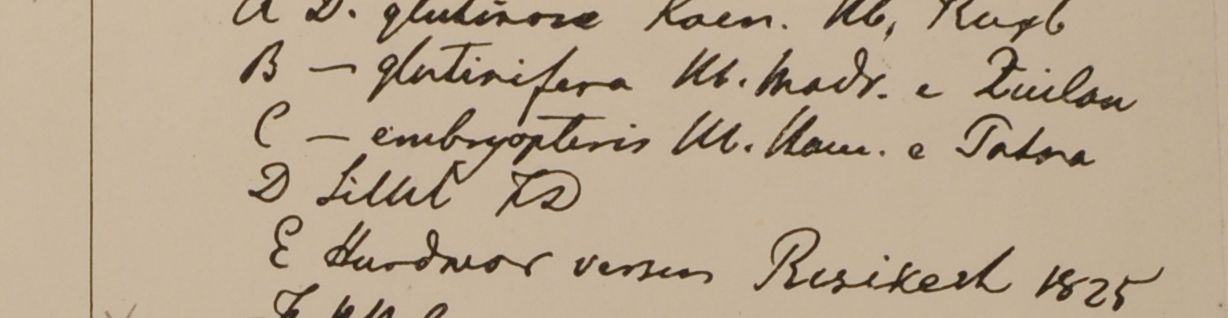 A D. glutinosa Koen. Hb. Roxb
B — glutinifera Hb. Madr. e Zeilan
C — embryopteris Hb. Ham. e Patna
D Sillet FD
E Hurdwar versus Resikesh 1825